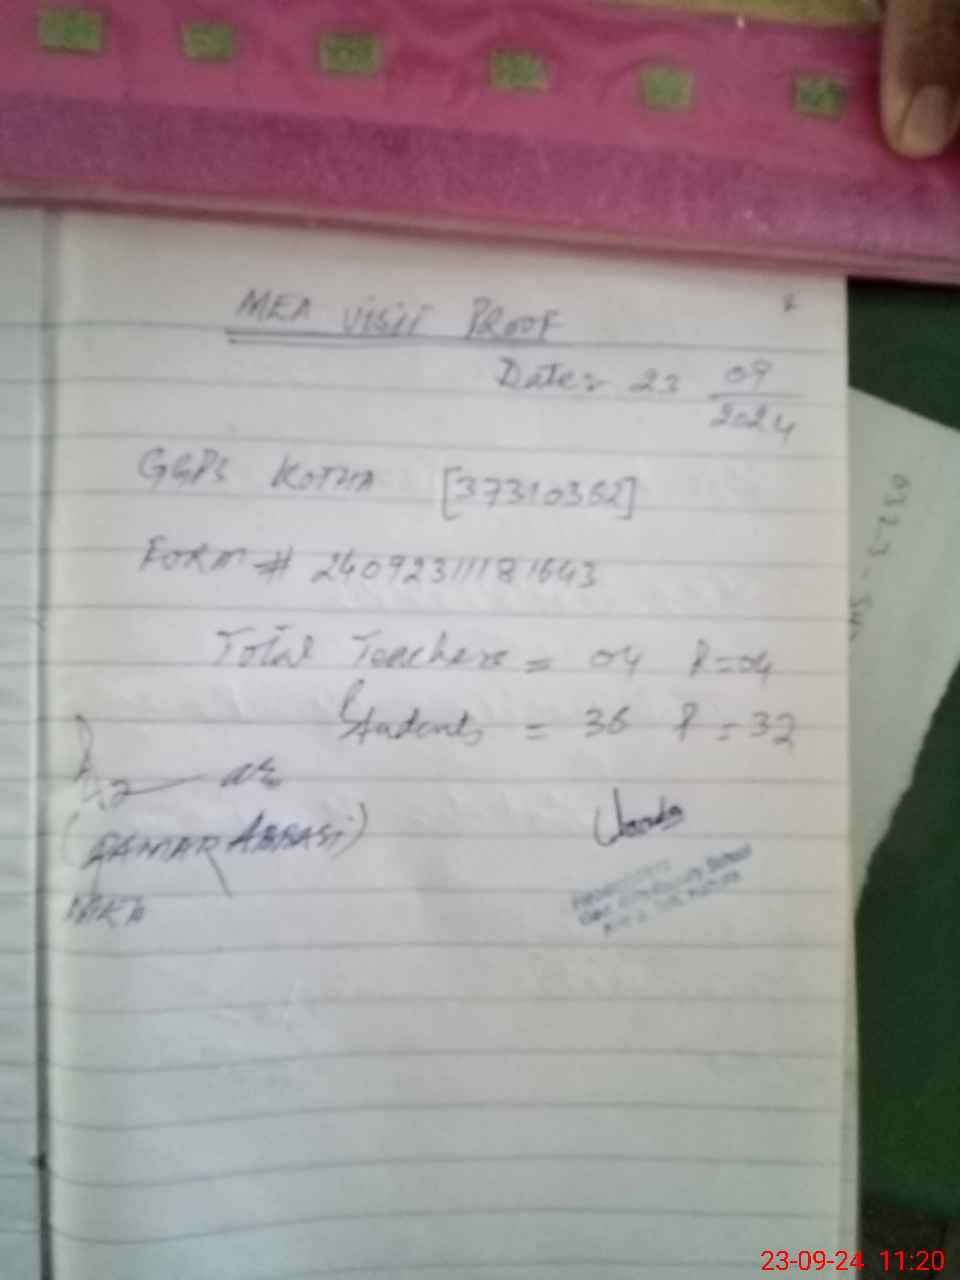 MEA Visit PROOF
Date:- 23 09/2024
GGPS KOTHA [37310362]
FORM # 24092311181643
Total Teachers = 04 P=04
Students = 36 P = 32
(QAMAR ABBASI)
MEA
School
0323-
23-09-24 11:20